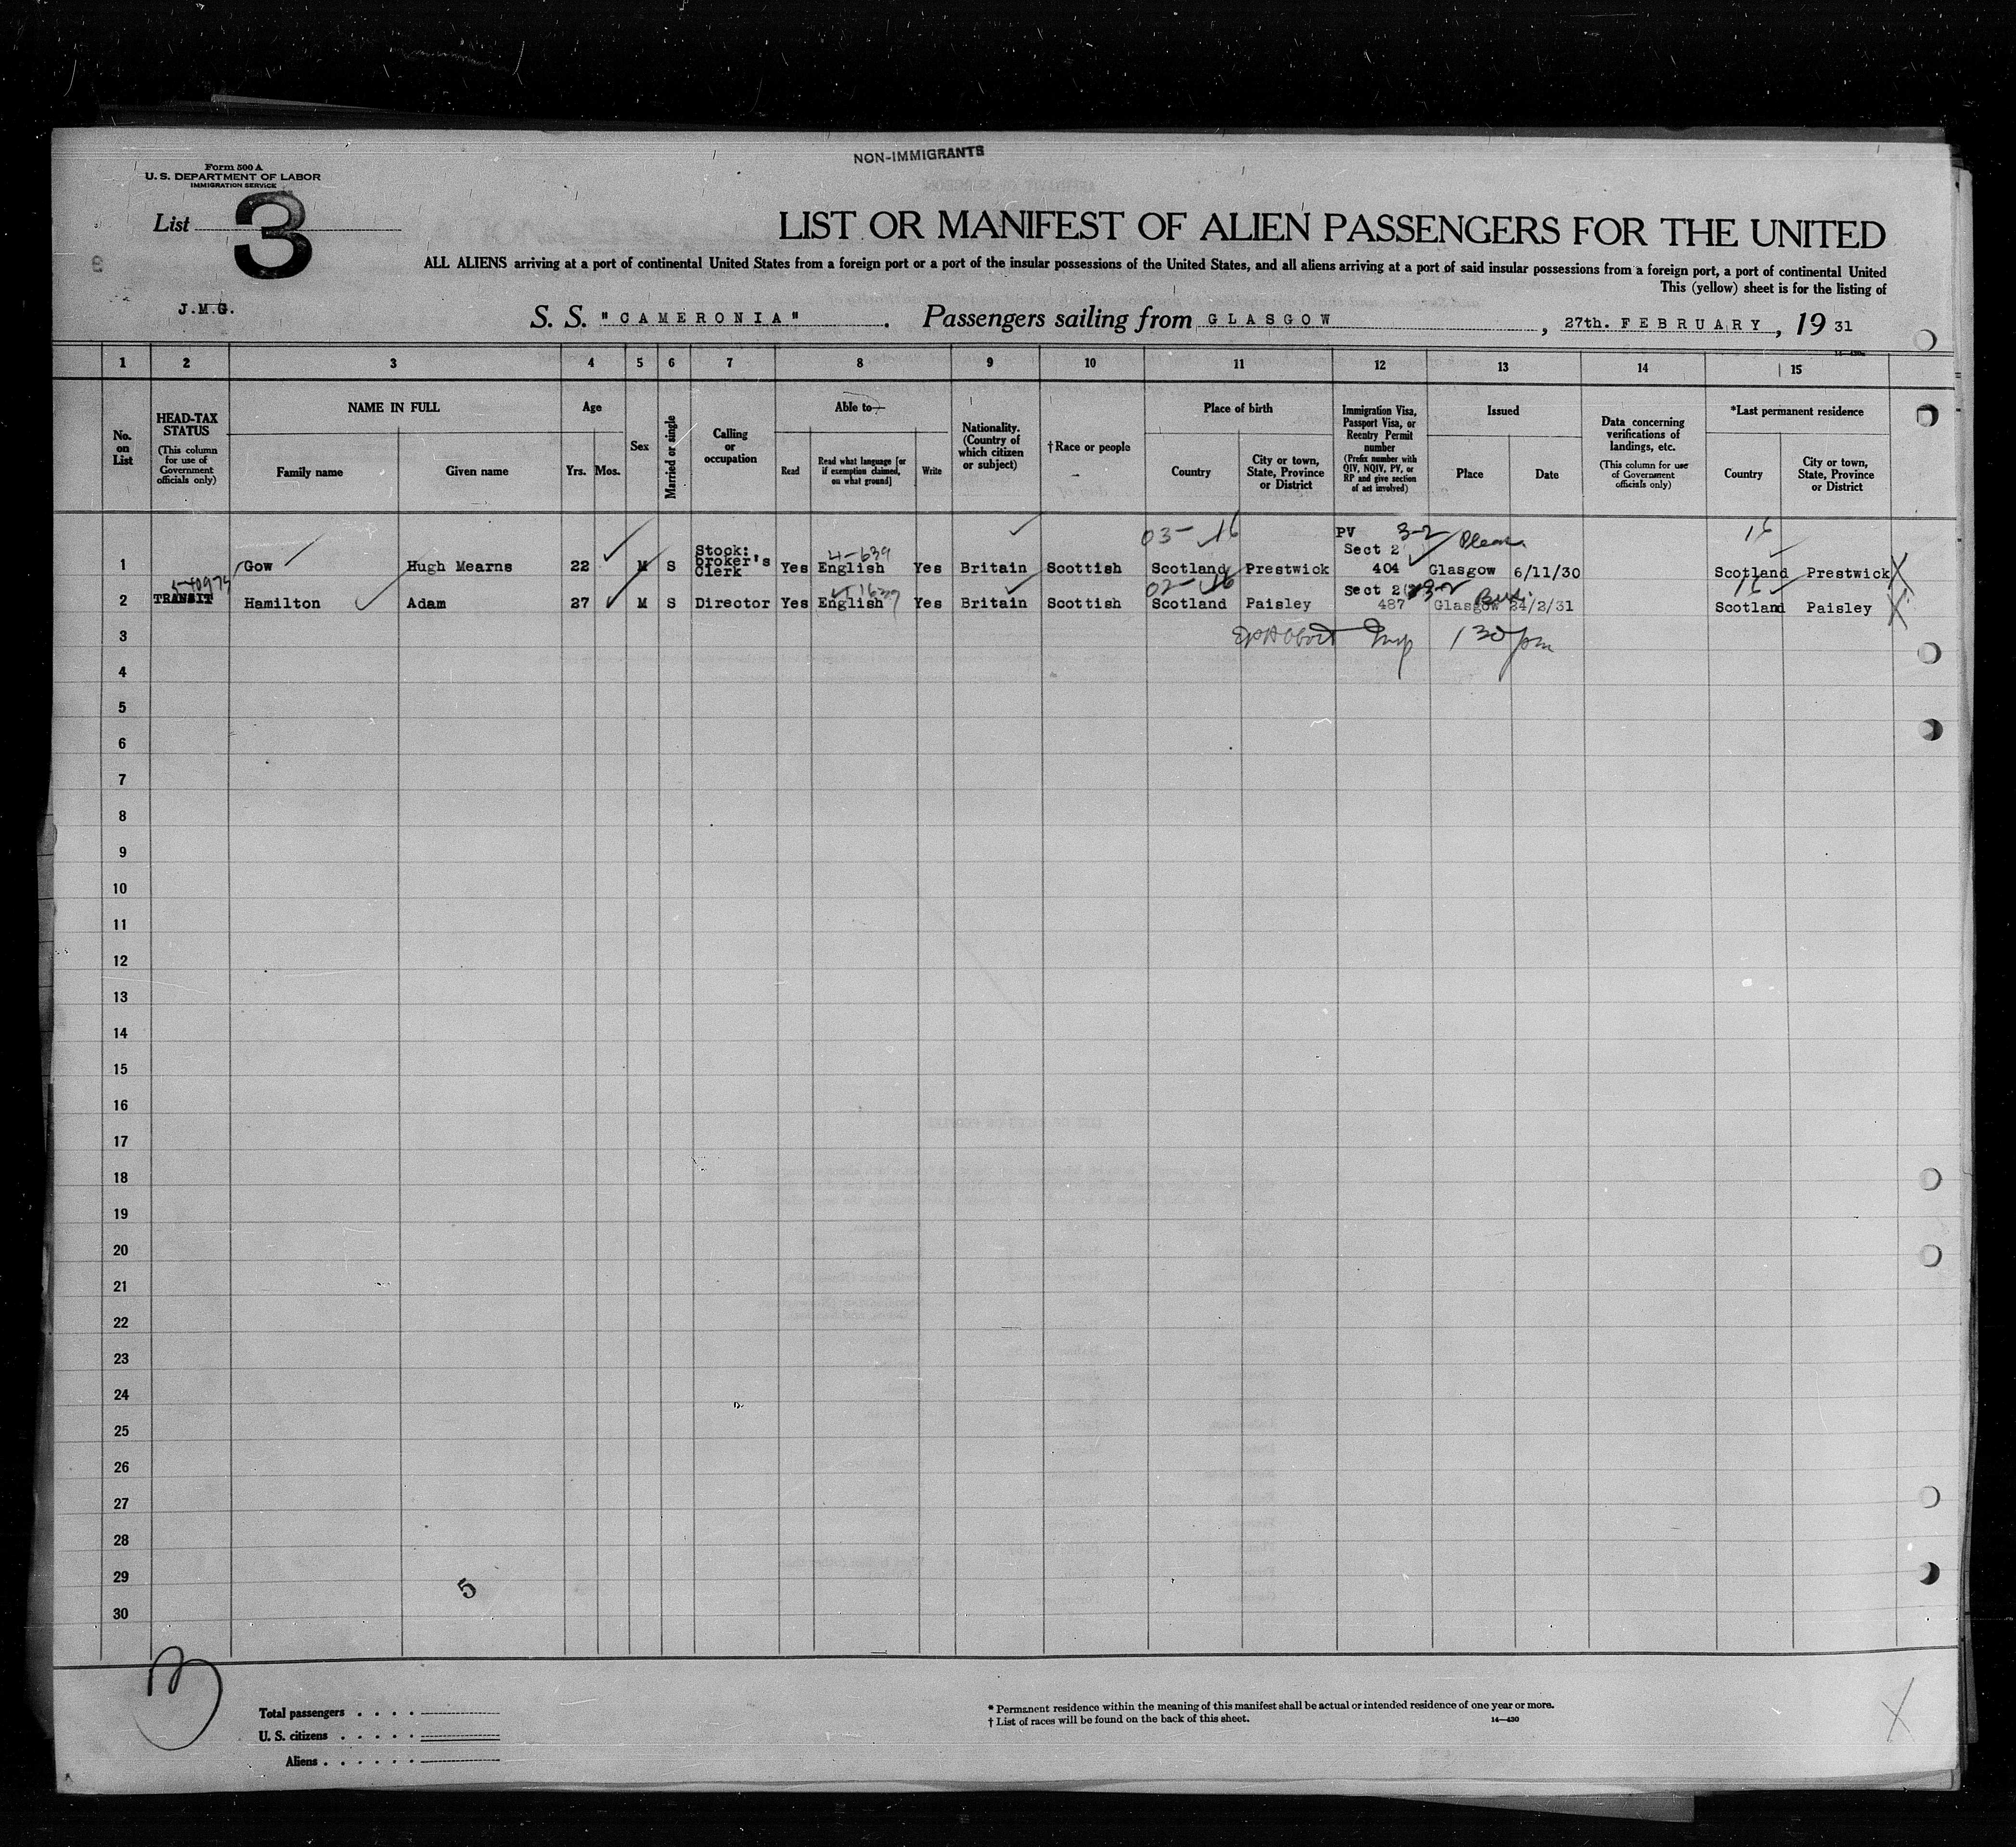 NON-IMMIGRANTS
Form 500 A
U. S. DEPARTMENT OF LABOR
IMMIGRATION SERVICE
List 3
LIST OR MANIFEST OF ALIEN PASSENGERS FOR THE UNITED
ALL ALIENS arriving at a port of continental United States from a foreign port or a port of the insular possessions of the United States, and all aliens arriving at a port of said insular possessions from a foreign port, a port of continental United
This (yellow) sheet is for the listing of
J.M.G.
S. S. "CAMERONIA" . Passengers sailing from GLASGOW , 27th. FEBRUARY , 19 31
1 2 3 4 5 6 7 8 9 10 11 12 13 14 15
No. on List
HEAD-TAX STATUS
(This column for use of Government officials only)
NAME IN FULL
Family name
Given name
Age
Yrs. Mos.
Sex
Married or single
Calling or occupation
Able to—
Read
Read what language [or if exemption claimed, on what ground]
Write
Nationality. (Country of which citizen or subject)
†Race or people
Place of birth
Country
City or town, State, Province or District
Immigration Visa, Passport Visa, or Reentry Permit number
(Prefix number with QIV, NQIV, PV, or RP and give section of act involved)
Issued
Place
Date
Data concerning verifications of landings, etc.
(This column for use of Government officials only)
*Last permanent residence
Country
City or town, State, Province or District
03- 16 PV 3-2 16
1 Gow Hugh Mearns 22 M S Stock: broker's Clerk Yes 4-639 English Yes Britain Scottish Scotland Prestwick Sect 2 404 Glasgow 6/11/30 Scotland Prestwick
02- 16 16
2 TRANSIT Hamilton Adam 27 M S Director Yes English Yes Britain Scottish Scotland Paisley Sect 2 487 Glasgow 24/2/31 Scotland Paisley
3 1 30 pm
4
5
6
7
8
9
10
11
12
13
14
15
16
17
18
19
20
21
22
23
24
25
26
27
28
29
5
30
3
Total passengers . . . .
U. S. citizens . . . . .
Aliens . . . . . .
* Permanent residence within the meaning of this manifest shall be actual or intended residence of one year or more.
† List of races will be found on the back of this sheet.
14—430